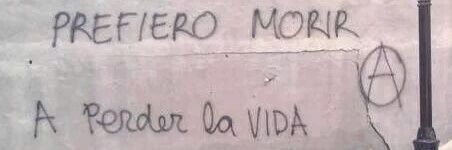 PREFIERO MORIR
A
A Perder la VIDA